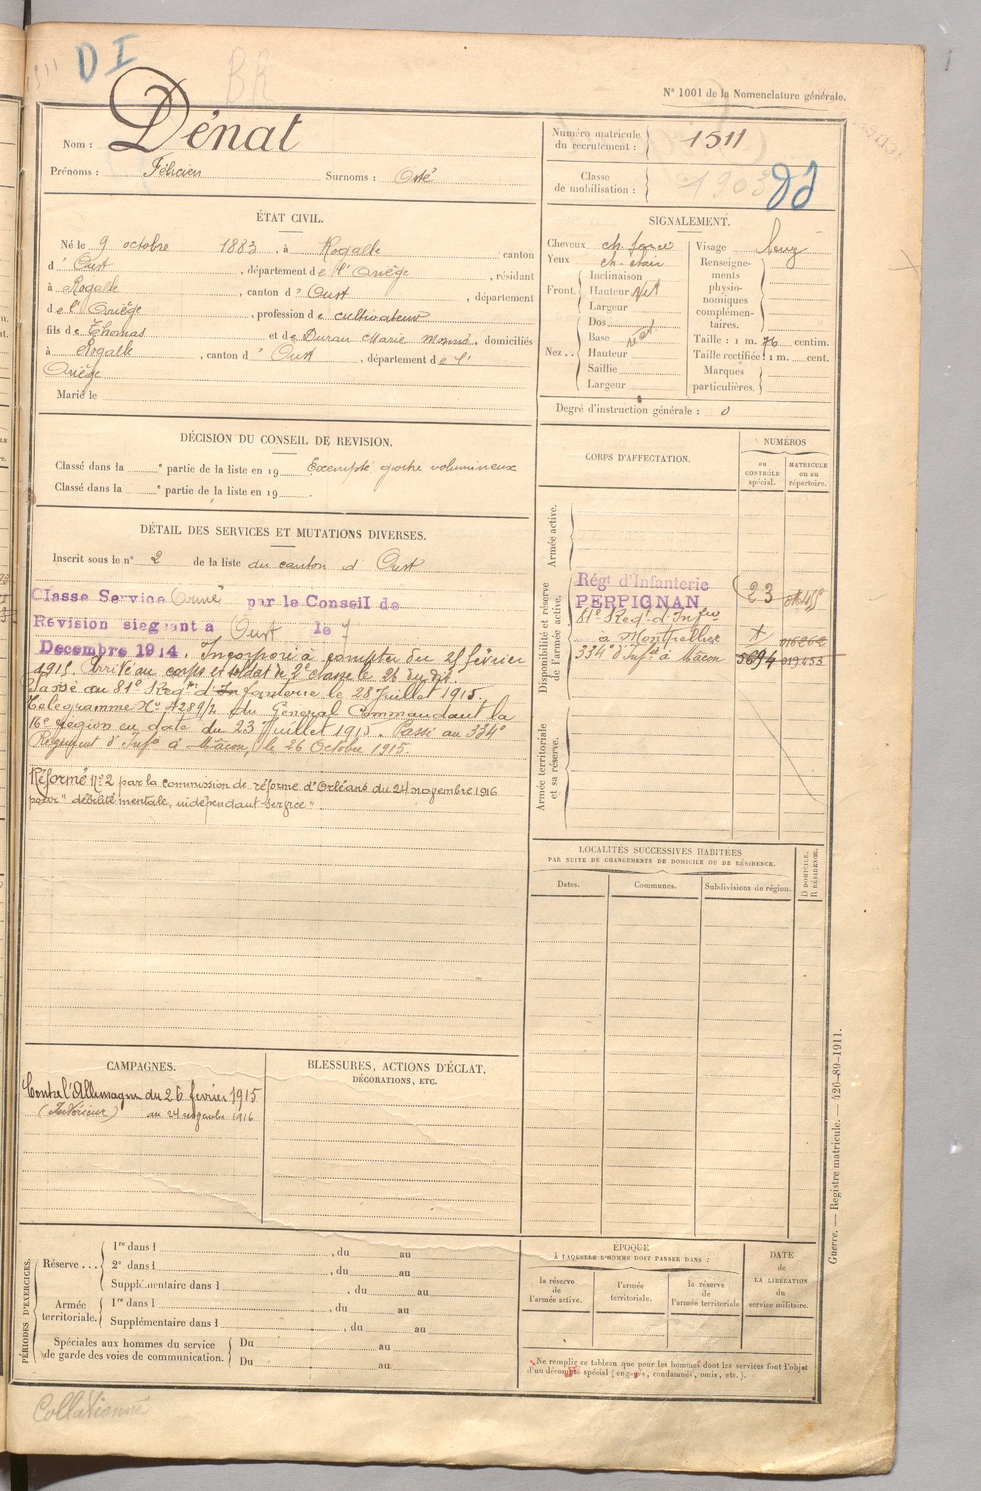 DI
BR
N° 1001 de la Nomenclature générale.
Nom : Dénat
Prénoms : Félicien Surnoms : Osté
Numéro matricule du recrutement : 1511
Classe de mobilisation : 1903
ÉTAT CIVIL.
Né le 9 octobre 1883, à Rogalle canton
d' Oust, département de l'Ariège, résidant
à Rogalle, canton d' Oust, département
de l'Ariège, profession de cultivateur
fils de Thomas et de Duran Marie, domiciliés
à Rogalle, canton d' Oust, département de l'
Ariège
Marié le
SIGNALEMENT.
Cheveux ch. foncé
Yeux ch. clair
Front. Inclinaison
Hauteur
Largeur
Nez.. Dos
Base
Hauteur
Saillie
Largeur
Visage
Renseignements physionomiques complémentaires.
Taille : 1 m. 76 centim.
Taille rectifiée : 1 m. cent.
Marques particulières.
Degré d'instruction générale : 0
DÉCISION DU CONSEIL DE REVISION.
Classé dans la e partie de la liste en 19 Exempté goitre volumineux
Classé dans la e partie de la liste en 19 .
DÉTAIL DES SERVICES ET MUTATIONS DIVERSES.
Inscrit sous le n° 2 de la liste du canton d' Oust
Classe Service Armé par le Conseil de
Révision siegeant a Oust le 7
Decembre 1914. Incorporé à compter du 25 février
1915. Arrivé au corps et soldat de 2e classe le 26 du dit.
Passé au 81e Regt d'Infanterie le 28 Juillet 1915.
Télégramme No 4289/2 du Général Commandant la
16e région en date du 23 Juillet 1915. Passé au 334e
Régiment d'Infie à Mâcon, le 26 Octobre 1915.
Réformé N°2 par la commission de réforme d'Orléans du 24 novembre 1916
pour "débilité mentale, indépendant service"
CORPS D'AFFECTATION.
NUMÉROS
au CONTRÔLE spécial.
MATRICULE ou au répertoire.
Armée active.
Disponibilité et réserve de l'armée active.
Régt d'Infanterie
PERPIGNAN 23
81e Regt d'Infie
à Montpellier
334e d'Infie à Mâcon 5694 019453
Armée territoriale et sa réserve.
LOCALITÉS SUCCESSIVES HABITÉES
PAR SUITE DE CHANGEMENTS DE DOMICILE OU DE RÉSIDENCE.
Dates. Communes. Subdivisions de région.
D DOMICILE. R RÉSIDENCE.
CAMPAGNES.
Contre l'Allemagne du 26 février 1915
(Intérieur) au 24 novembre 1916
BLESSURES, ACTIONS D'ÉCLAT,
DÉCORATIONS, ETC.
PÉRIODES D'EXERCICES.
Réserve ... 1re dans l , du au
2e dans l , du au
Supplémentaire dans l , du au
Armée territoriale. 1re dans l , du au
Supplémentaire dans l , du au
Spéciales aux hommes du service Du au
de garde des voies de communication. Du au
ÉPOQUE
À LAQUELLE L'HOMME DOIT PASSER DANS :
la réserve de l'armée active.
l'armée territoriale.
la réserve de l'armée territoriale
DATE de LA LIBÉRATION du service militaire.
Ne remplir ce tableau que pour les hommes dont les services font l'objet
d'un décompte spécial (engagés, condamnés, omis, etc.).
Guerre. — Registre matricule. — 426-89-1911.
Collationné